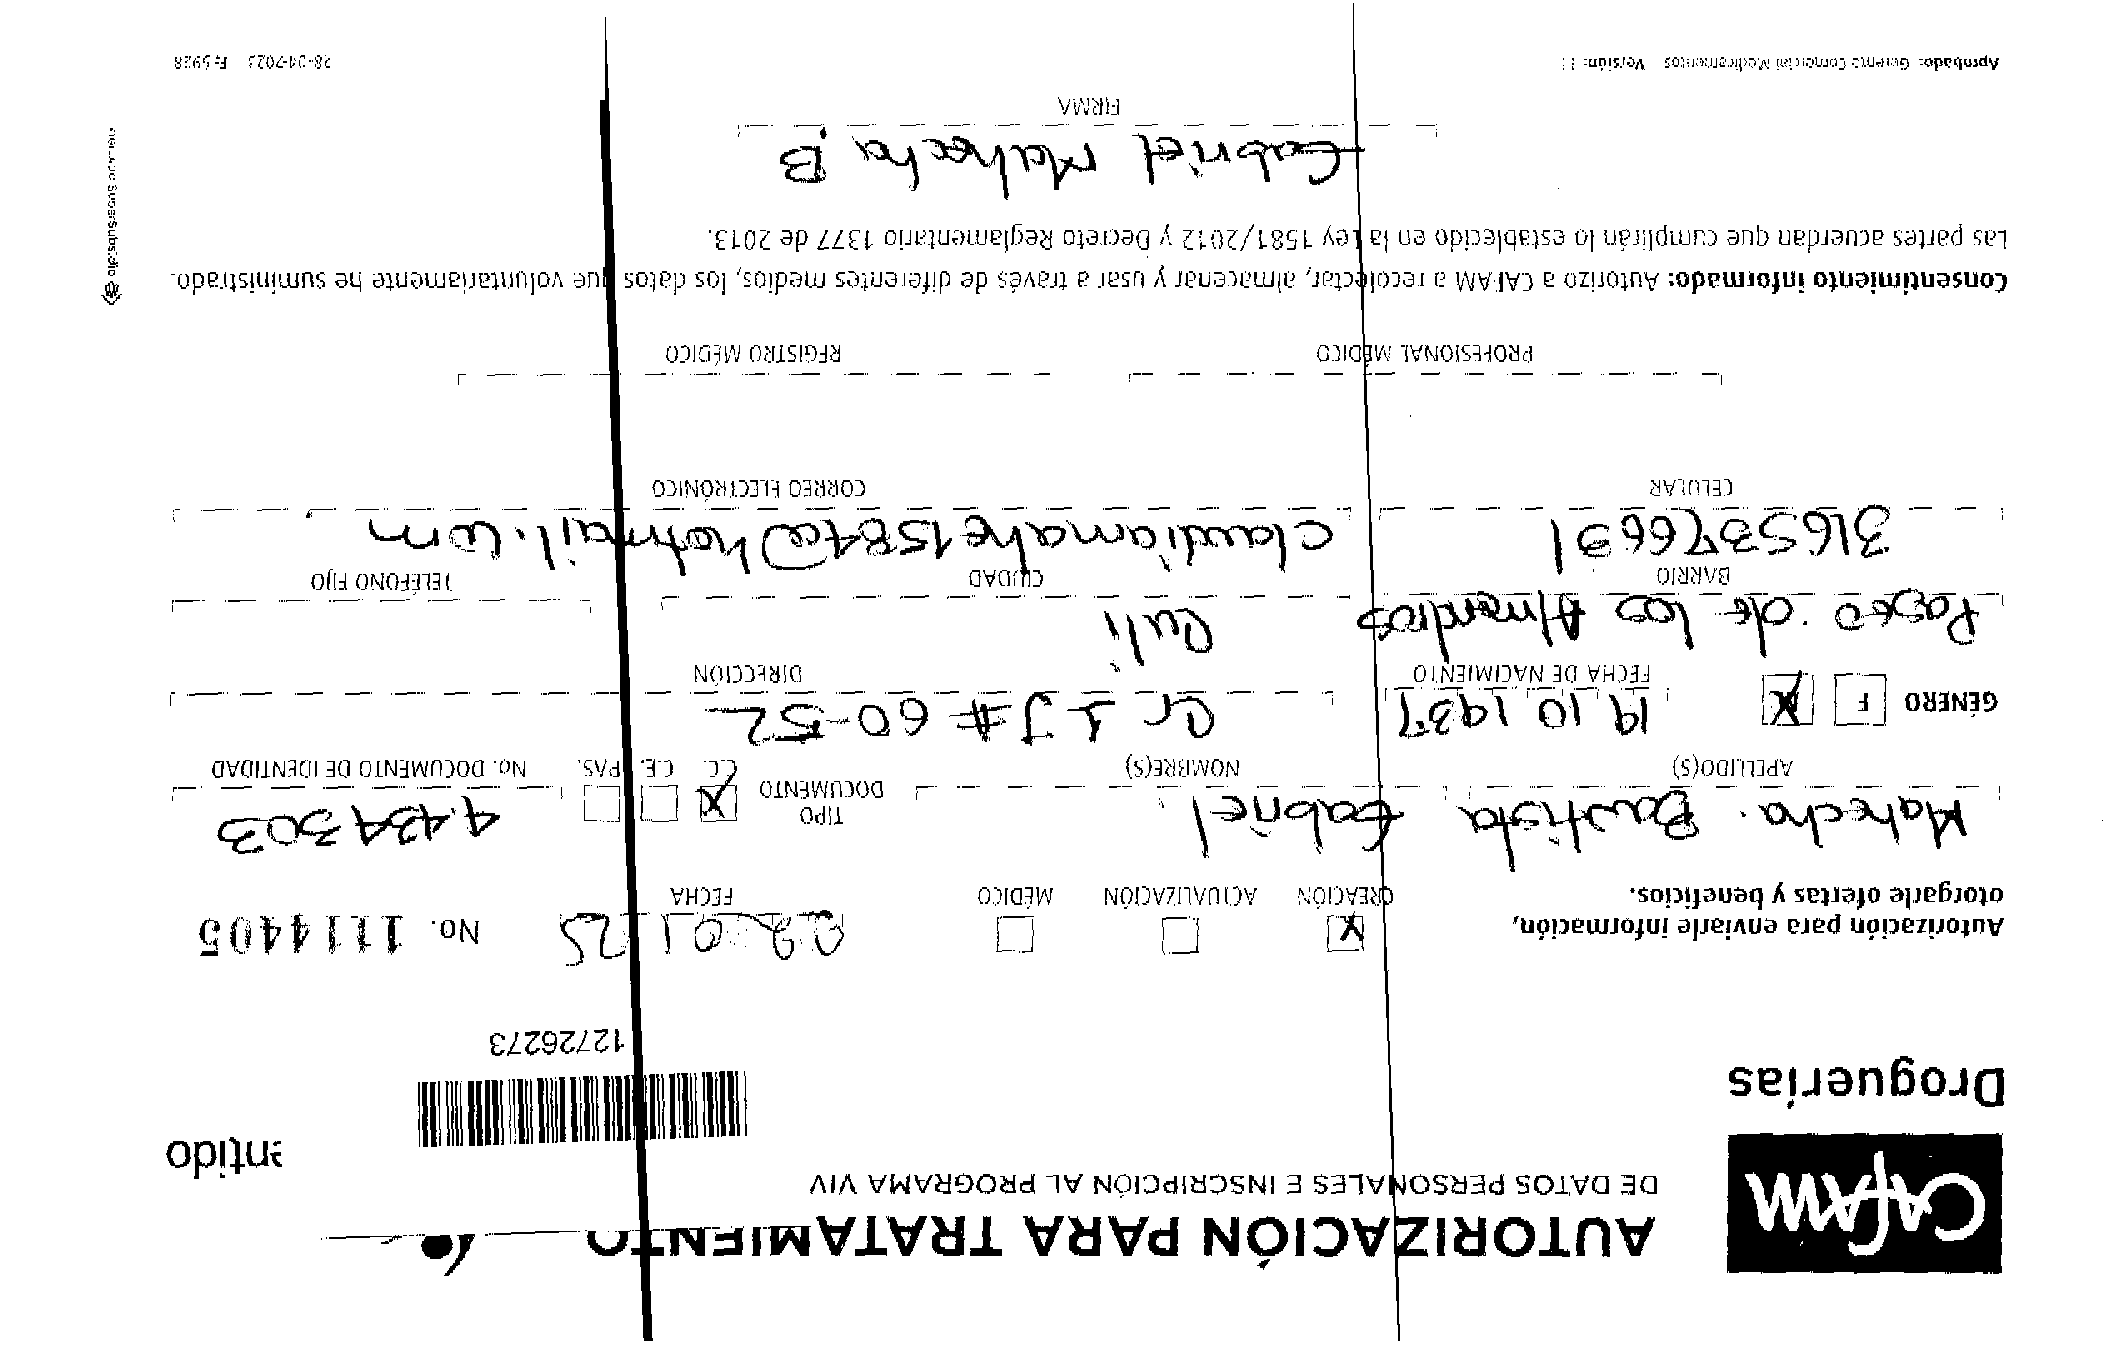 CAFAM
Droguerías
AUTORIZACIÓN PARA TRATAMIENTO
DE DATOS PERSONALES E INSCRIPCIÓN AL PROGRAMA VIV
entido
12726273
Autorización para enviarle información,
otorgarle ofertas y beneficios.
X CREACIÓN
ACTUALIZACIÓN
MÉDICO
22 01 25
FECHA
No. 1114405
Mahecha Bautista
APELLIDO(S)
Gabriel
NOMBRE(S)
TIPO DOCUMENTO
X C.C. C.E. PAS.
4.434303
No. DOCUMENTO DE IDENTIDAD
GÉNERO F X
19 10 1937
FECHA DE NACIMIENTO
Cr 1 J # 60-52
DIRECCIÓN
Paseo de los Almendros
BARRIO
Cali
CIUDAD
TELÉFONO FIJO
3165376691
CELULAR
claudiamahe1584@hotmail.com
CORREO ELECTRÓNICO
PROFESIONAL MÉDICO
REGISTRO MÉDICO
Consentimiento informado: Autorizo a CAFAM a recolectar, almacenar y usar a través de diferentes medios, los datos que voluntariamente he suministrado.
Las partes acuerdan que cumplirán lo establecido en la Ley 1581/2012 y Decreto Reglamentario 1377 de 2013.
Gabriel Mahecha B
FIRMA
Aprobado: Gerente Comercial Medicamentos Versión: 11
28-04-2023 F-5928